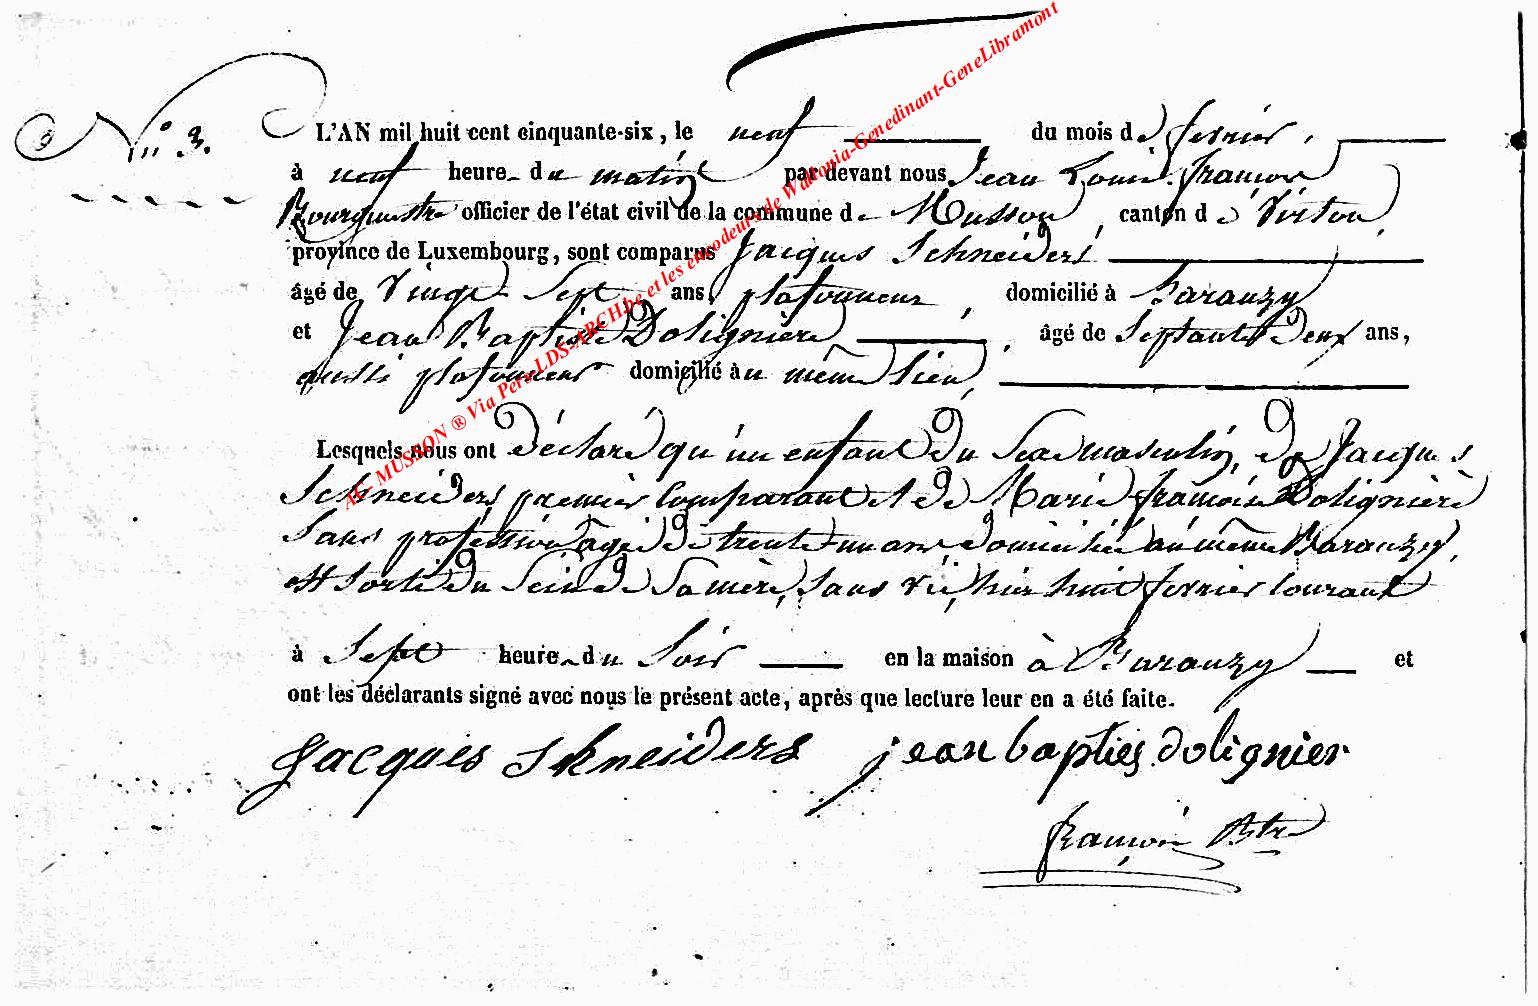 N° 3.
L'AN mil huit cent cinquante-six, le neuf du mois de fevrier,
à neuf heures du matin par devant nous Jean Louis François
Bourguestre officier de l'état civil de la commune de Musson, canton de Virton,
province de Luxembourg, sont comparus Jacques Schneiders
âgé de Vingt-Sept ans, plafonneur, domicilié à Baranzy
et Jean Baptiste Dolignière, âgé de Septante deux ans,
aussi plafonneur domicilié au même lieu,
Lesquels nous ont déclaré qu'un enfant du Sexe masculin, de Jacques
Schneiders premier Comparant et de Marie françoise Dolignière
Sans profession âgée de trente-un ans domiciliée au même Baranzy,
est Sorti du Sein de Sa mère, Sans vie, hier huit fevrier Courant
à Sept heures du Soir en la maison à Baranzy et
ont les déclarants signé avec nous le présent acte, après que lecture leur en a été faite.
Jacques Schneiders jean bapties dolignier
françois Btre
AE- MUSSON ® Via Pers-LDS-ARCH.be et les encodeurs de Wallonia-Genedinant-GeneLibramont